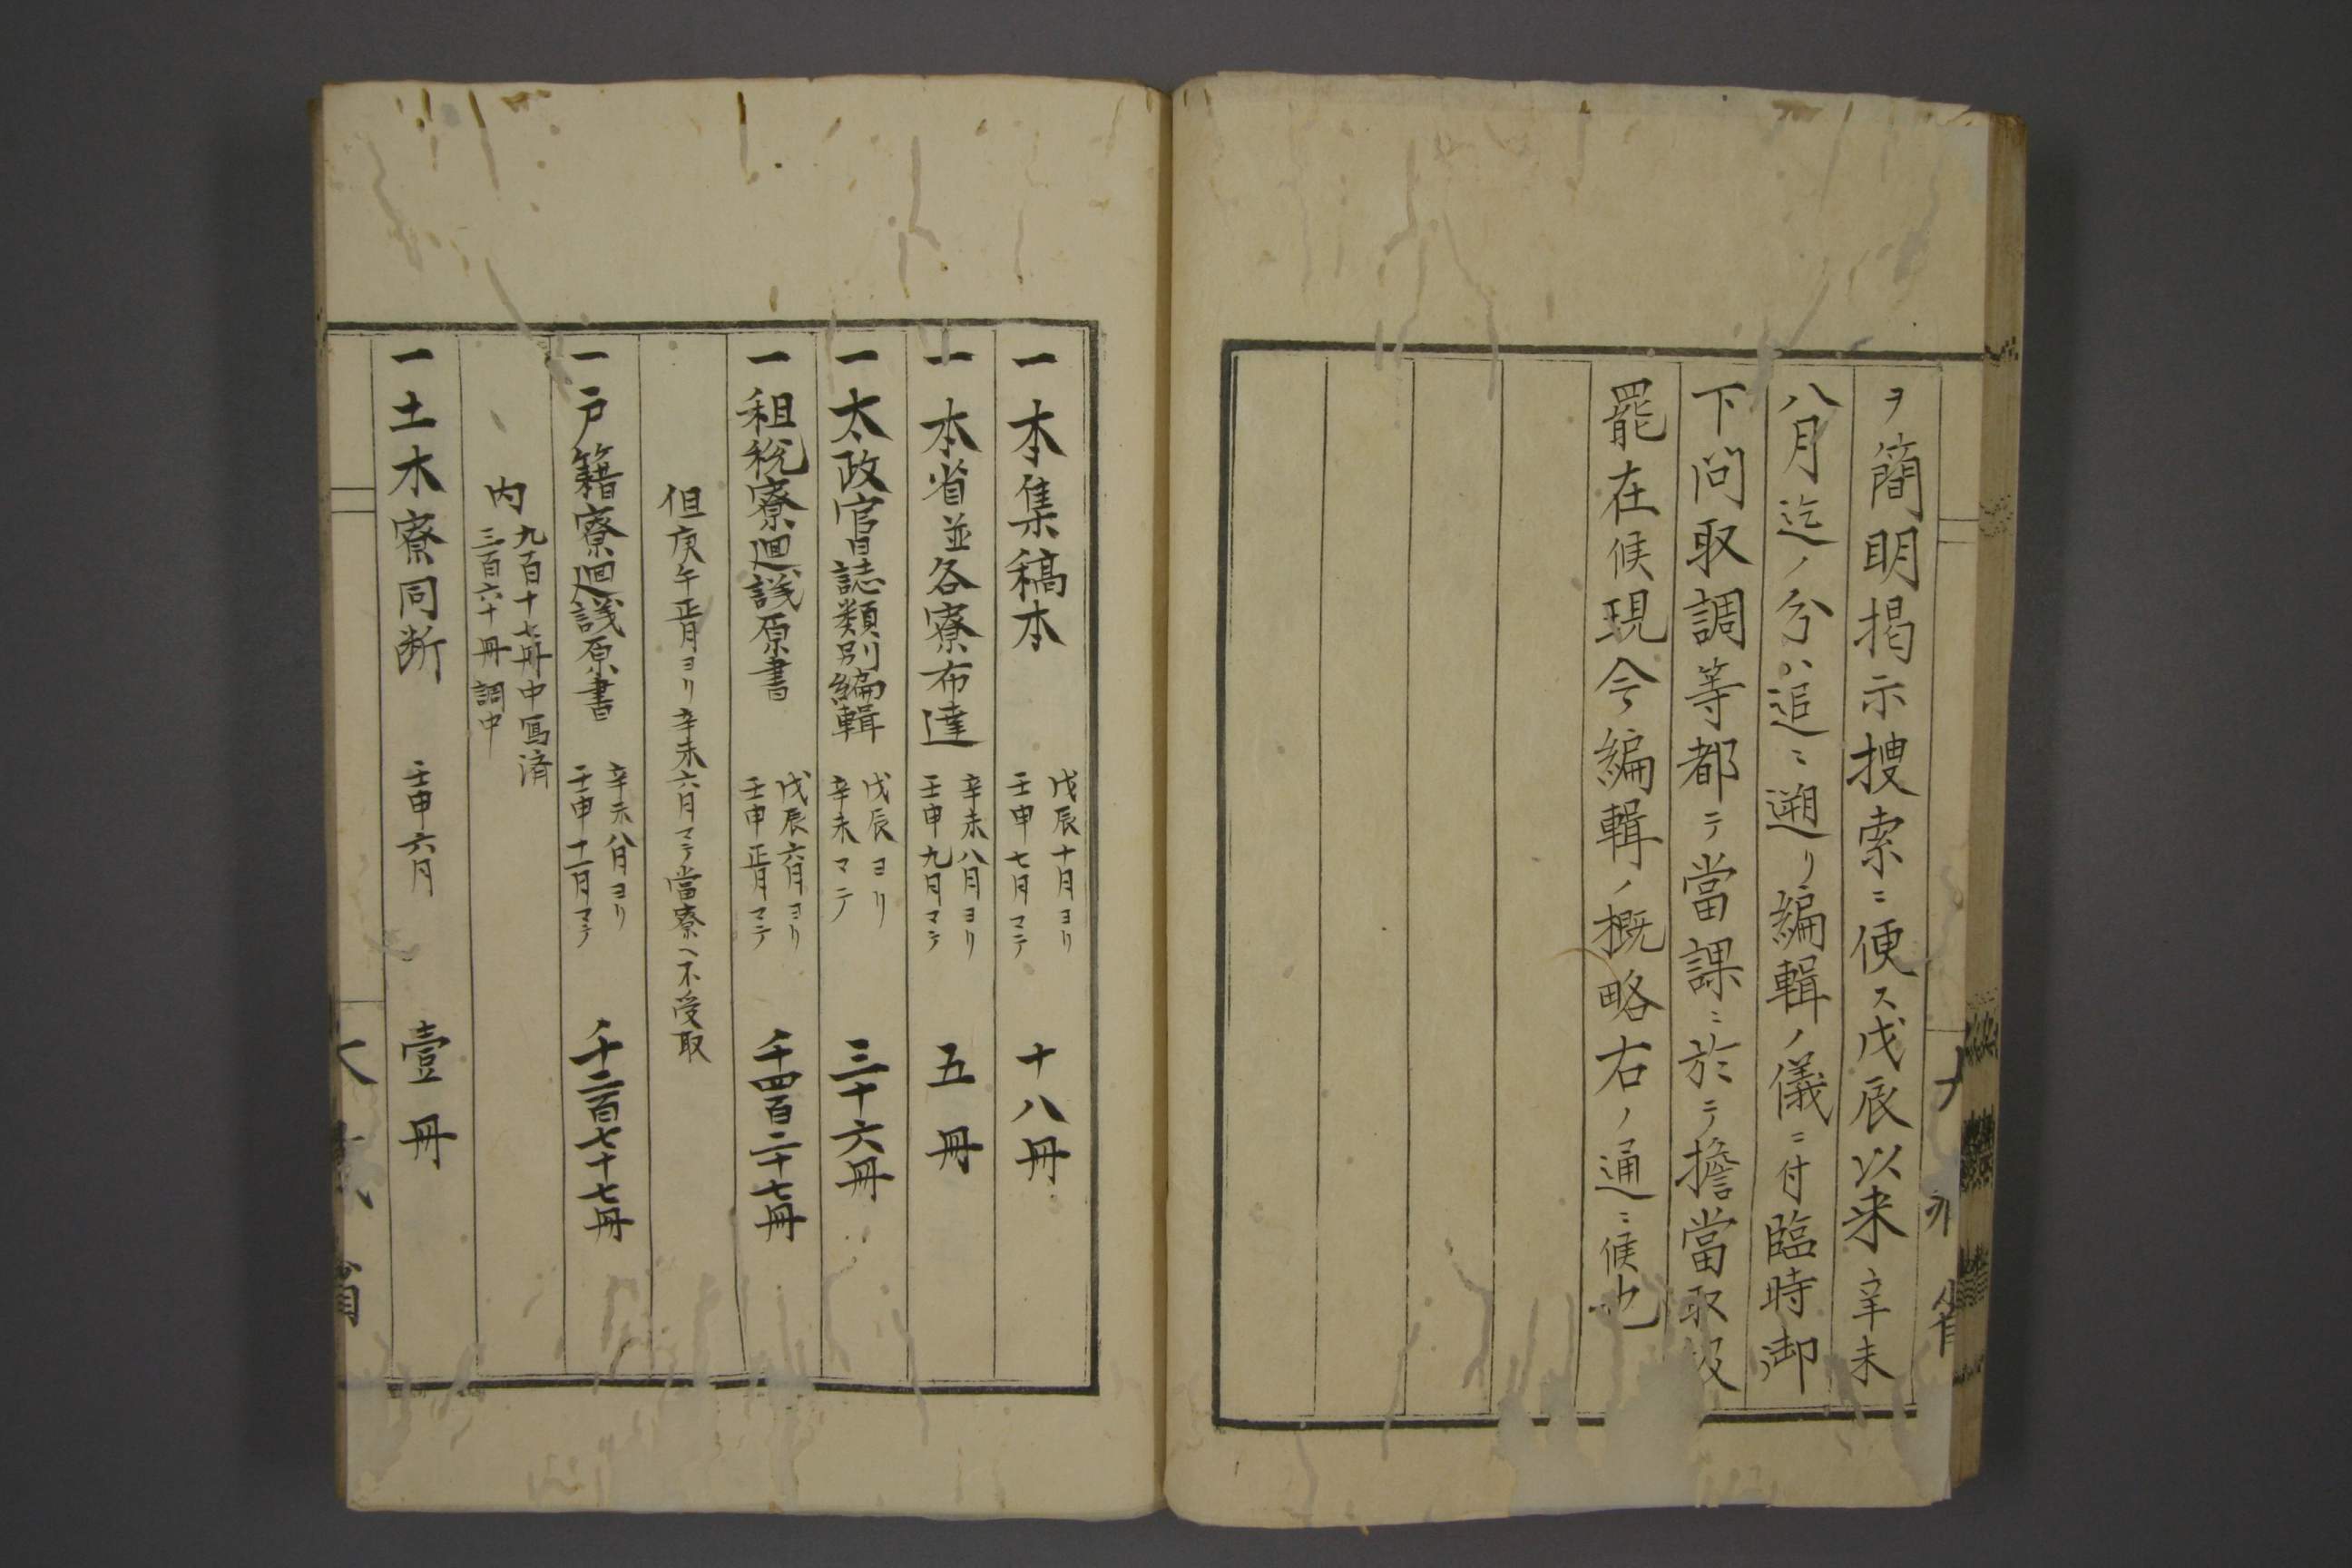 ヲ簡明掲示捜索ニ便ス戊辰以来辛未
八月迄ノ分ハ追ニ遡リ編輯ノ儀ニ付臨時御
下問取調等都テ當課ニ於テ擔當取扱
罷在候現今編輯ノ概略右ノ通ニ候也
一本集稿本 戊辰十月ヨリ壬申七月マテ 十八冊
一本省並各寮布達 辛未八月ヨリ壬申九月マテ 五冊
一太政官日誌類別編輯 戊辰ヨリ辛未マテ 三十六冊
一租税寮廻議原書 戊辰六月ヨリ壬申正月マテ 千四百二十七冊
但庚午正月ヨリ辛未六月マテ當寮ヘ不受取
一戸籍寮廻議原書 辛未八月ヨリ壬申十一月マテ 千二百七十七冊
内 九百十七冊中寫済 三百六十冊調中
一土木寮同断 壬申六月 壹冊